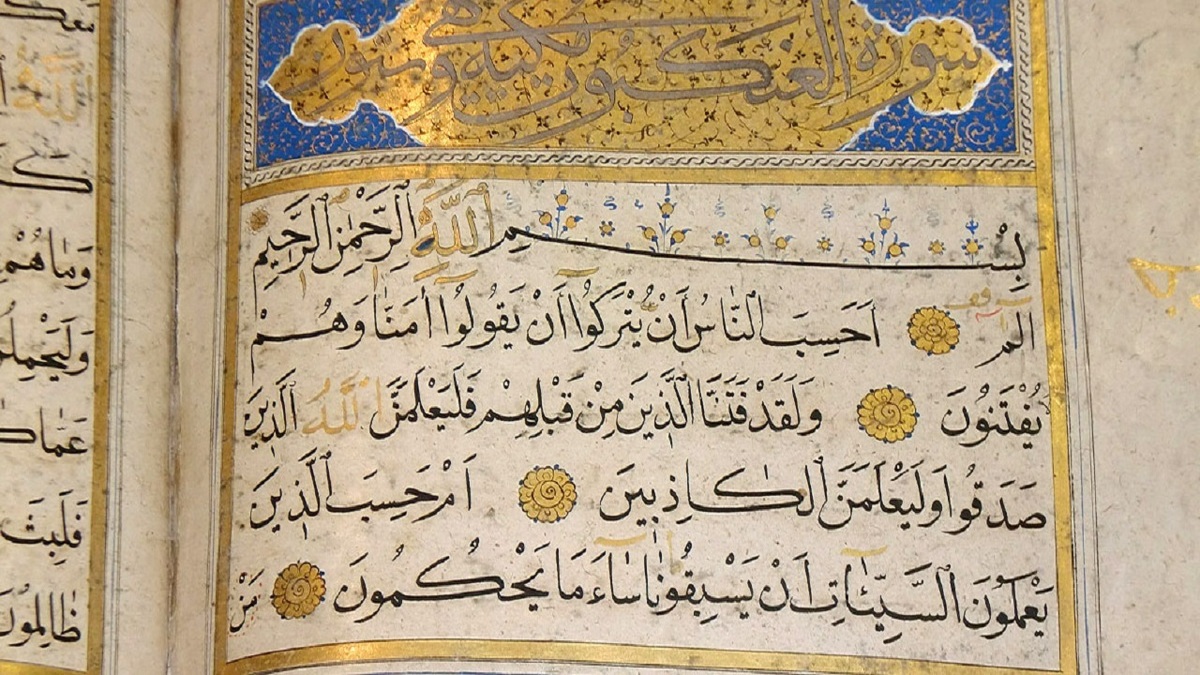 سورة العنكبوت مكية وهي وستون
بِسْمِ اللَّهِ الرَّحْمٰنِ الرَّحِيمِ
الم أَحَسِبَ النَّاسُ أَنْ يُتْرَكُوا أَنْ يَقُولُوا آمَنَّا وَهُمْ
يُفْتَنُونَ وَلَقَدْ فَتَنَّا الَّذِينَ مِنْ قَبْلِهِمْ فَلَيَعْلَمَنَّ اللَّهُ الَّذِينَ
صَدَقُوا وَلَيَعْلَمَنَّ الْكَاذِبِينَ أَمْ حَسِبَ الَّذِينَ
يَعْمَلُونَ السَّيِّئَاتِ أَنْ يَسْبِقُونَا سَاءَ مَا يَحْكُمُونَ مَنْ
اللَّهِ
وَمَا هُمْ
عَمَّا
فَلَبِثَ
ظَالِمُونَ